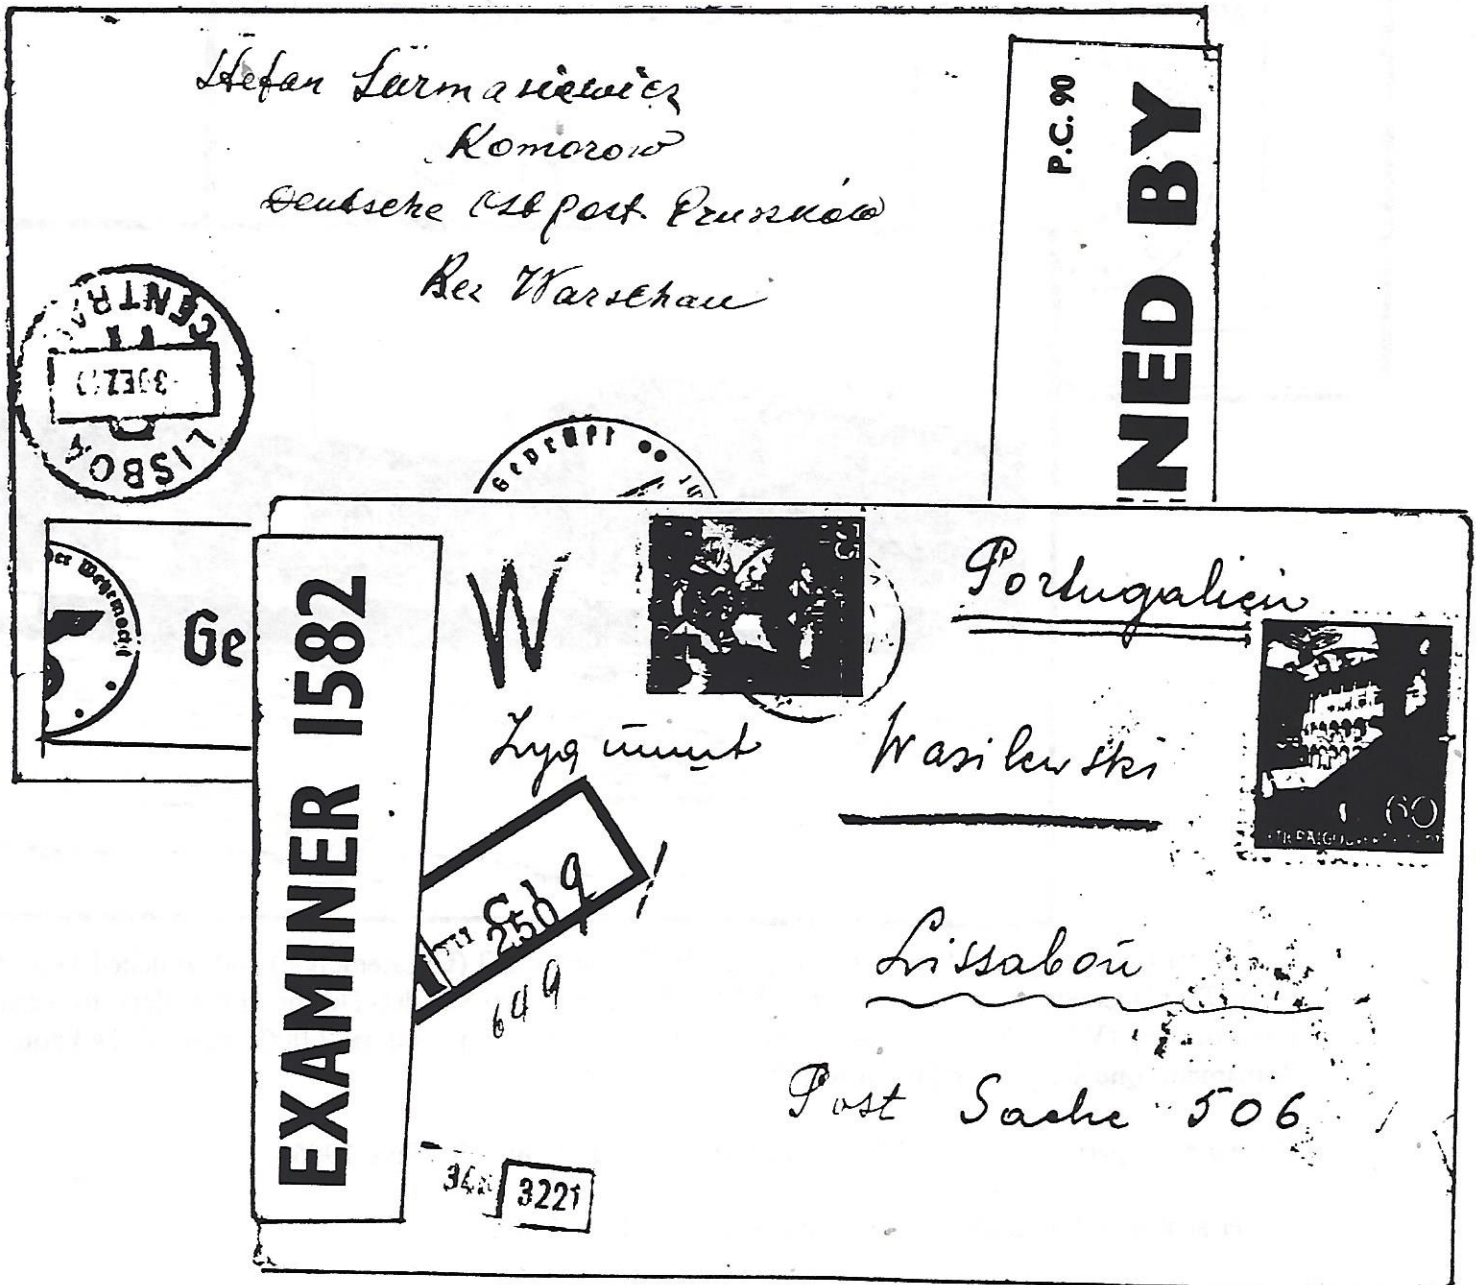 Stefan Surmasiewicz
Komorow
Deutsche Ostpost Pruszków
Bez Warschau
P.C. 90
NED BY
LISBOA
CENTRAL
Geprüft
der Wehrmacht
Ge
EXAMINER 1582
W
Portugalien
Zygmunt Wasilewski
60
Lissabon
Post Sache 506
250
649
3221